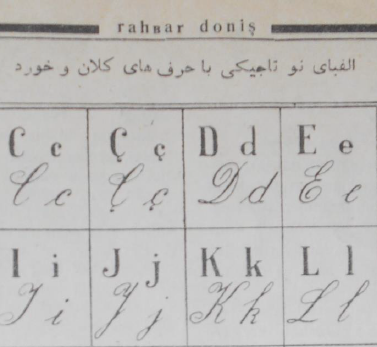 rahʙar doniş
الفبای نو تاجیکی با حرف های کلان و خورد
C c Ç ç D d E e
C c Ç ç D d E e
I i J j K k L l
I i J j K k L l